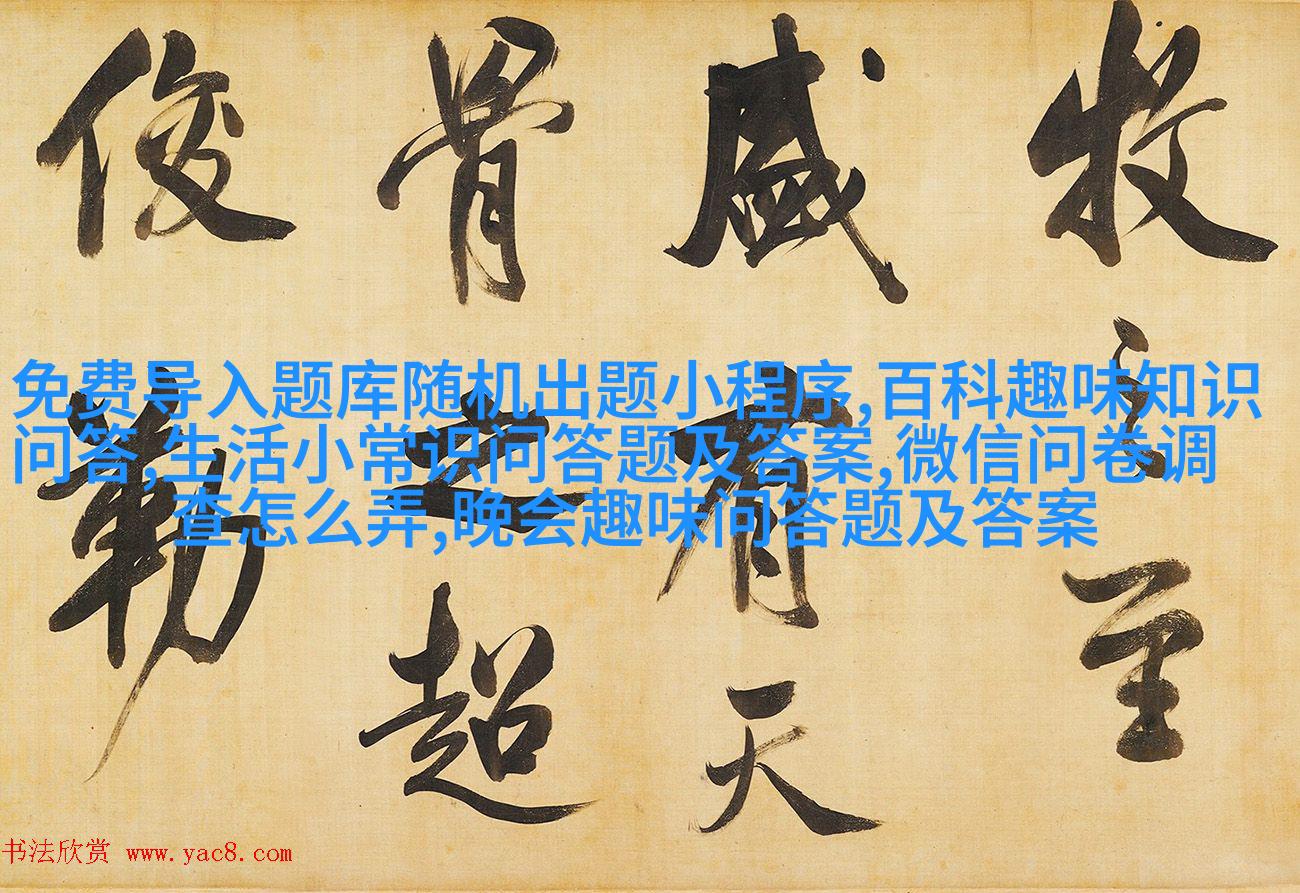 牧之至
盛有天
骨之超
俊勒
免费导入题库随机出题小程序,百科趣味知识
问答,生活小常识问答题及答案,微信问卷调
查怎么弄,晚会趣味问答题及答案
书法欣赏 www.yac8.com